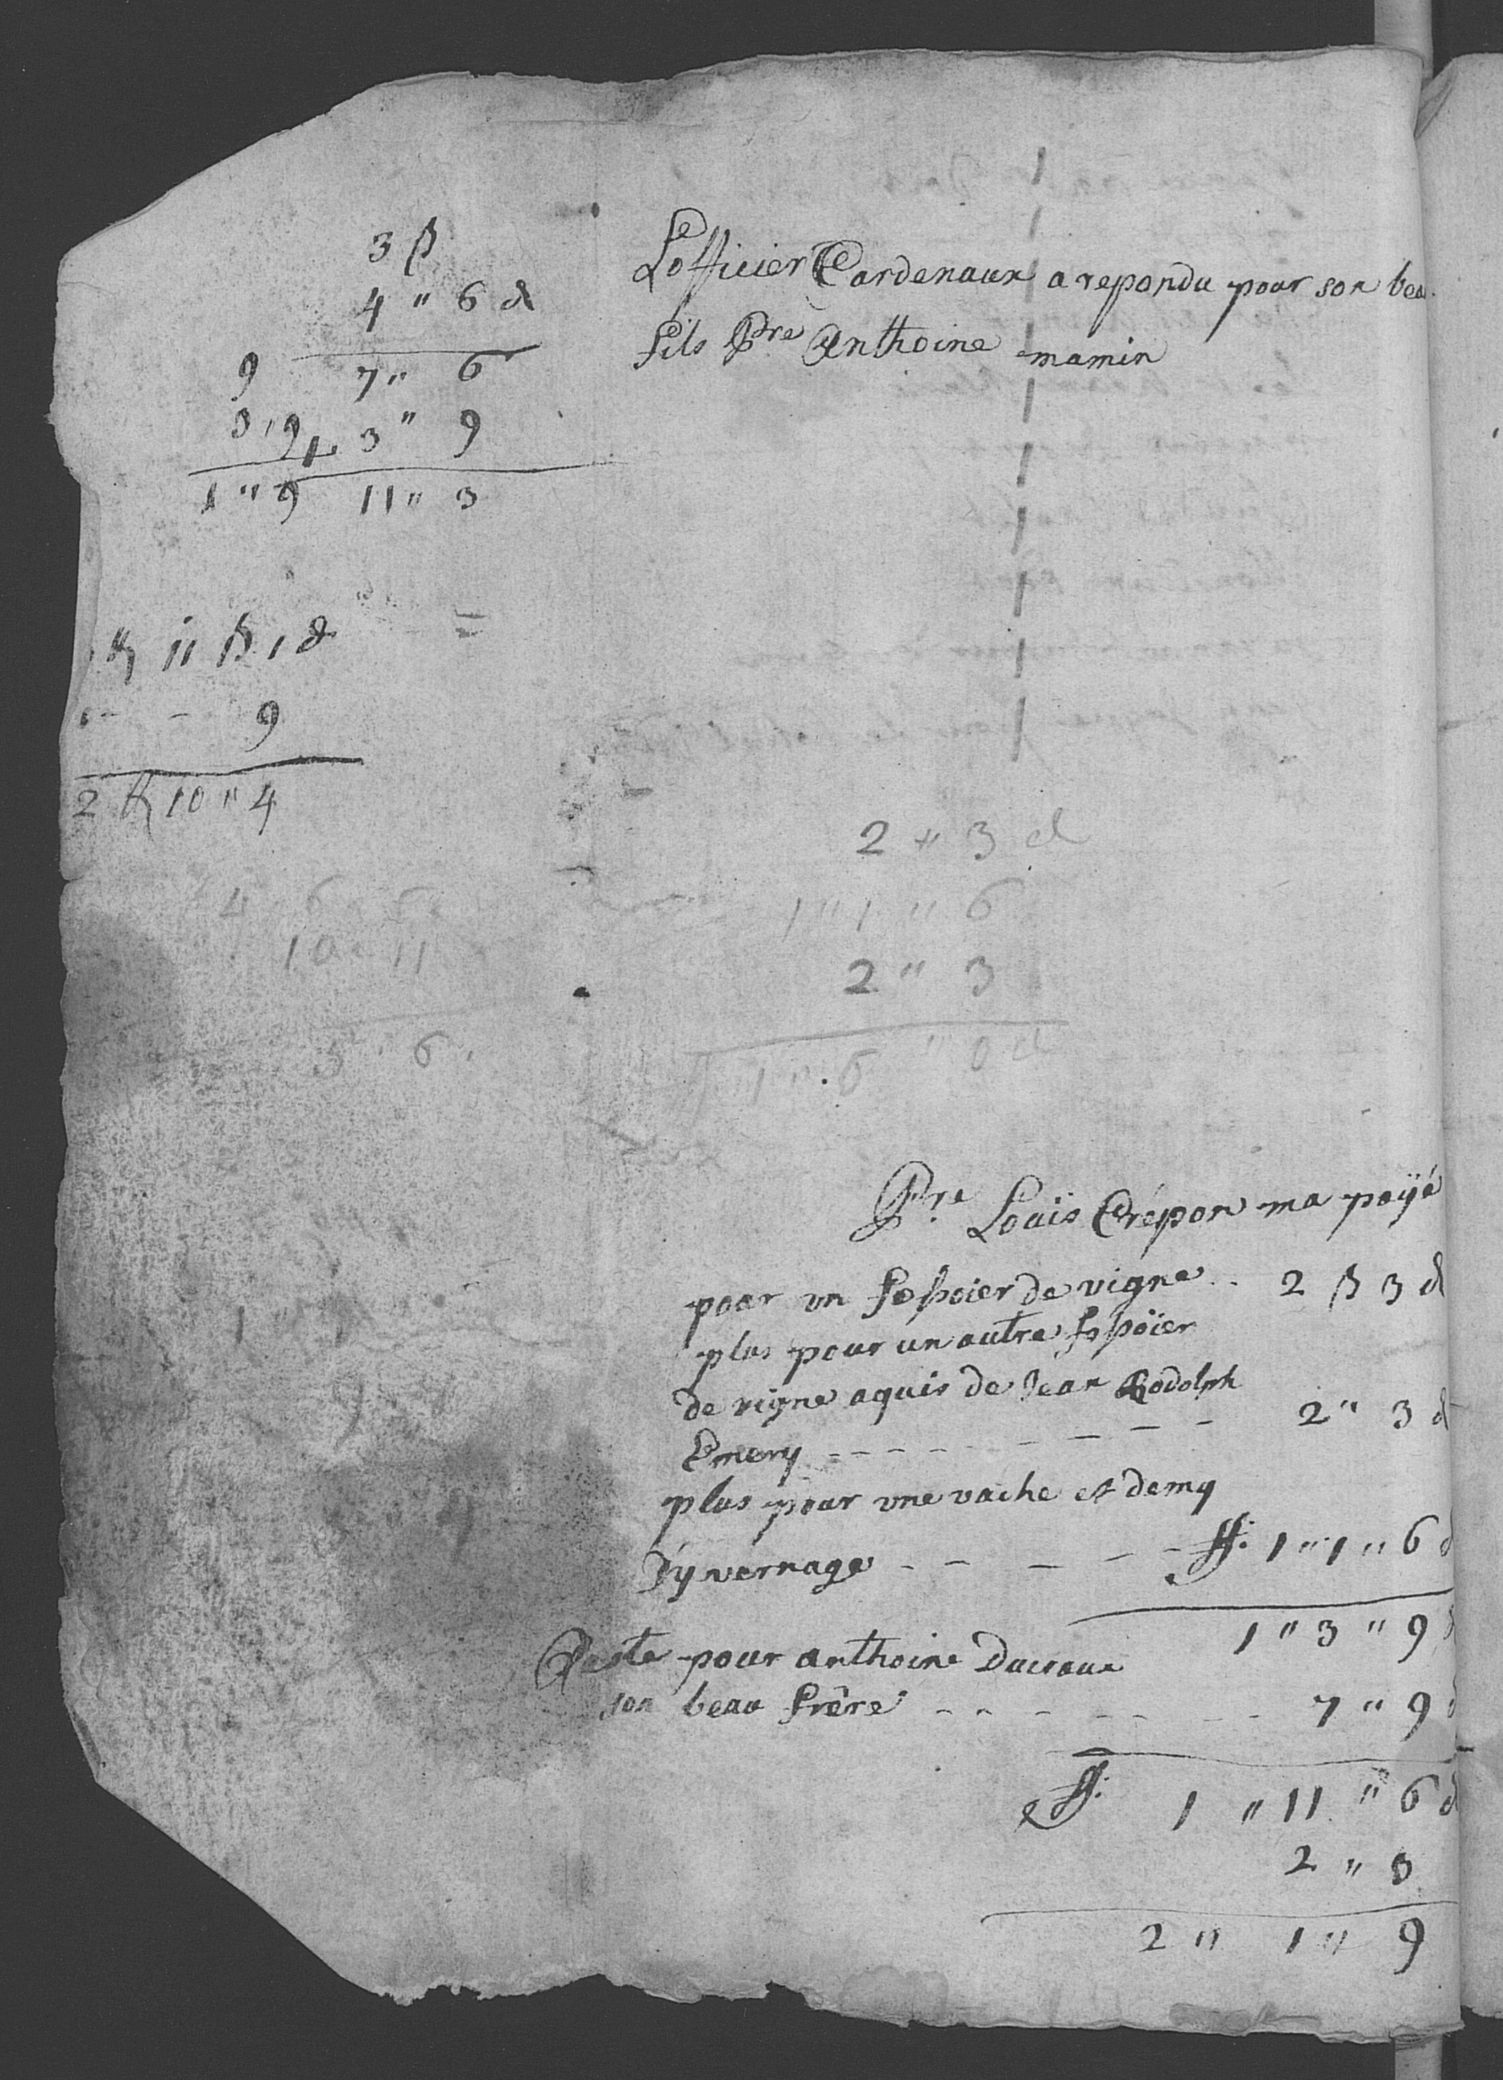 3 ß
4 " 6 d
9 7 " 6
3 " 9
1 " 9 11 " 3
Lofficier Cardenaux a repondu pour son beau
fils Pre Anthoine mamin
11 ß 1 d
9
2 10 " 4
2 " 3 d
1 " 1 " 6
2 " 3
1 " 6 " 0 d
4 6
10 11
6
Pre Louïs Crépon ma poÿé
pour un fossoier de vigne 2 ß 3 d
plus pour un autre fossoïer
de vigne aquis de Jean Rodolph
Emery - - - - - - - - 2 " 3 d
plus pour une vache et demy
d'yvernage - - - - - ff. 1 " 1 " 6 d
1 " 3 " 9 d
Reste pour anthoine Ducraux
son beau frêre - - - - - - 7 " 9 d
ff. 1 " 11 " 6 d
2 " 3
2 " 1 " 9